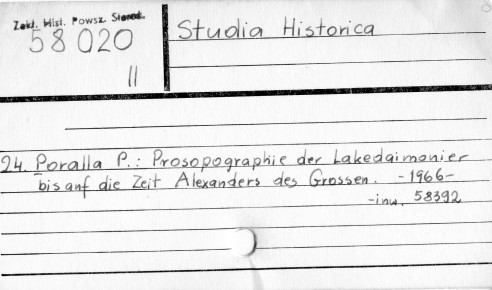 Zakł. Hist. Powsz. Staroż.
58 020
II
Studia Historica
24. Poralla P.: Prosopographie der Lakedaimonier
bis auf die Zeit Alexanders des Grossen. -1966-
-inw. 58392